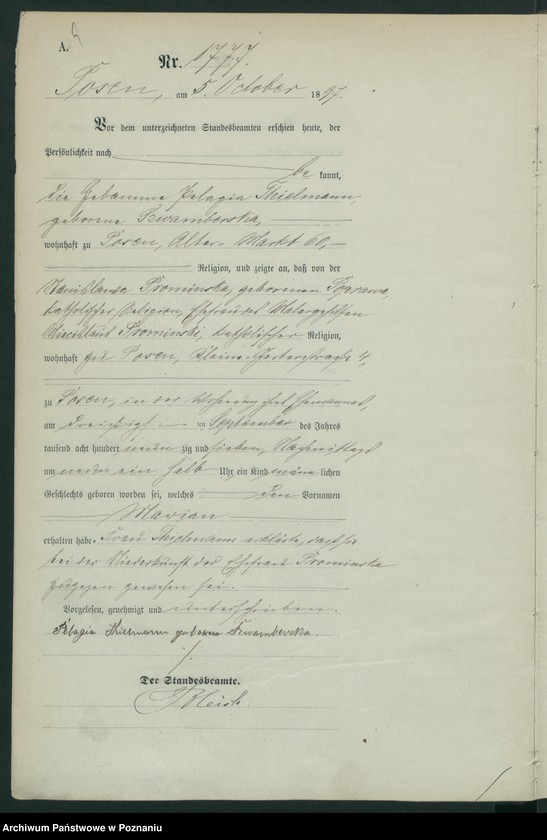 A.
Nr. 1777.
Posen, am 5. October 1897
Vor dem unterzeichneten Standesbeamten erschien heute, der
Persönlichkeit nach
be kannt,
die Hebamme Pelagia Thielmann,
geborene
wohnhaft zu Posen, Alter Markt 60,
Religion, und zeigte an, daß von der
Stanislawa Prominska, geborenen
katholischer Religion, Ehefrau des Malergehilfen
Prominski, katholischer Religion,
wohnhaft zu Posen, Kleine Gerberstraße 4,
zu Posen, in der Wohnung ihres Ehemannes,
am dreißigsten September des Jahres
tausend acht hundert neunzig und sieben, Nachmittags
um neun ein halb Uhr ein Kind männlichen
Geschlechts geboren worden sei, welches den Vornamen
Marian
erhalten habe. Frau Thielmann erklärte, daß sie
bei der Niederkunft der Ehefrau Prominska
zugegen gewesen sei.
Vorgelesen, genehmigt und unterschrieben.
Pelagia Thielmann geborene
Der Standesbeamte.
Archiwum Państwowe w Poznaniu